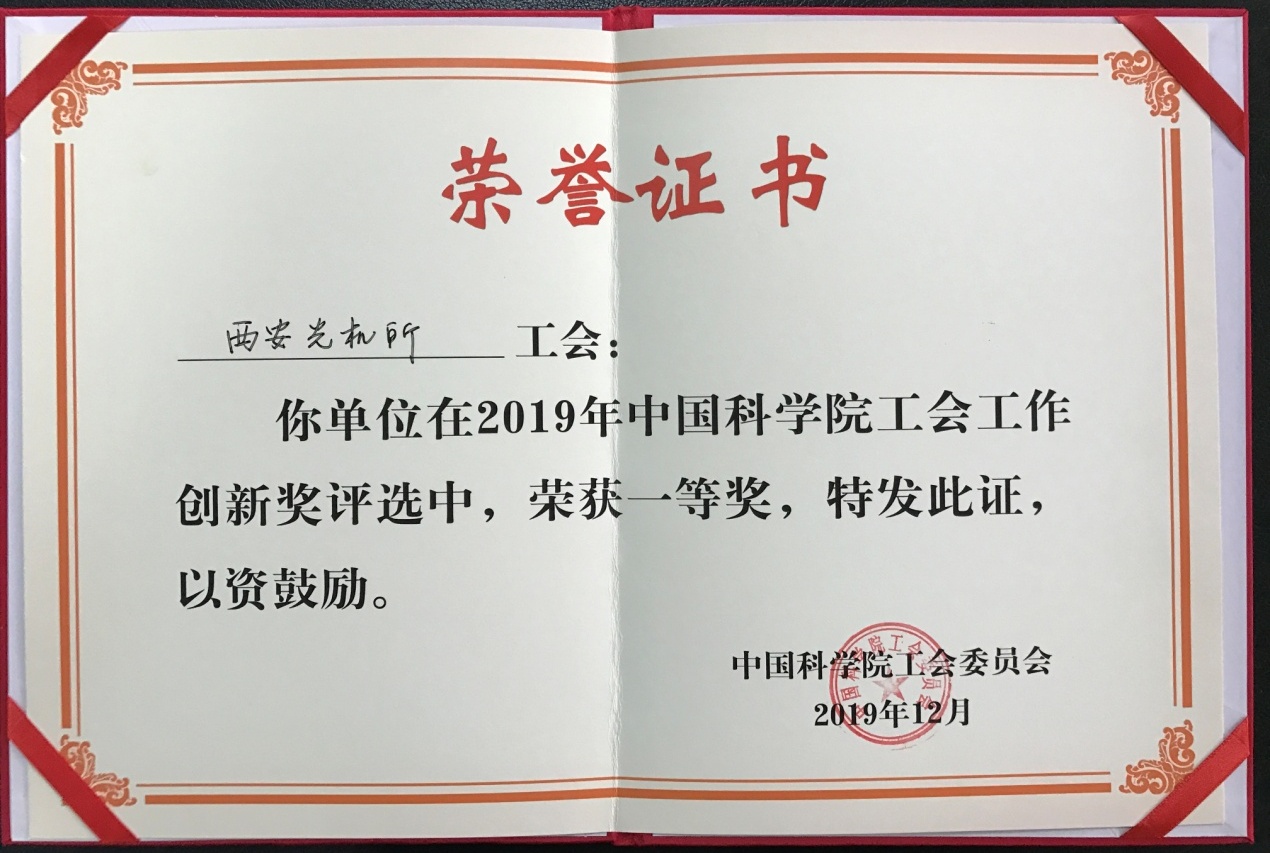 荣誉证书
西安光机所 工会：
你单位在2019年中国科学院工会工作
创新奖评选中，荣获一等奖，特发此证，
以资鼓励。
中国科学院工会委员会
2019年12月
中国科学院工会委员会